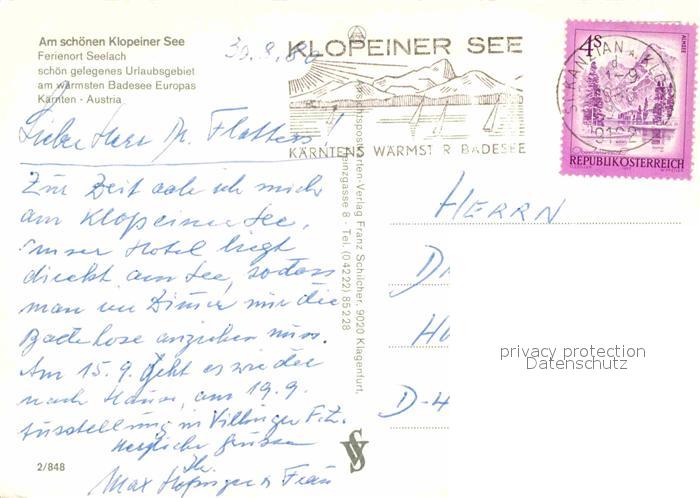 Am schönen Klopeiner See
Ferienort Seelach
schön gelegenes Urlaubsgebiet
am wärmsten Badesee Europas
Kärnten - Austria
KLOPEINER SEE
KÄRNTENS WÄRMST R BADESEE
4S
ALMSEE
REPUBLIK ÖSTERREICH
ST. KANZIAN A. KLOP
1-9
912
Liebe Herr Dr.
Zur Zeit aale ich mich
am Klopeiner See,
unser Hotel liegt
direkt am See, sodass
man im Zimmer nur die
Badehose anziehen muss.
Am 15.9. geht es wieder
nach Hause, am 19.9.
Ausstellung in Villingen
Herzliche Grüsse
Ihr
Max
Frau
HERRN
D-4
privacy protection
Datenschutz
Ansichtspostkarten-Verlag Franz Schilcher, 9020 Klagenfurt,
gasse 8 - Tel. (0 42 22) 85 2 28
2/848